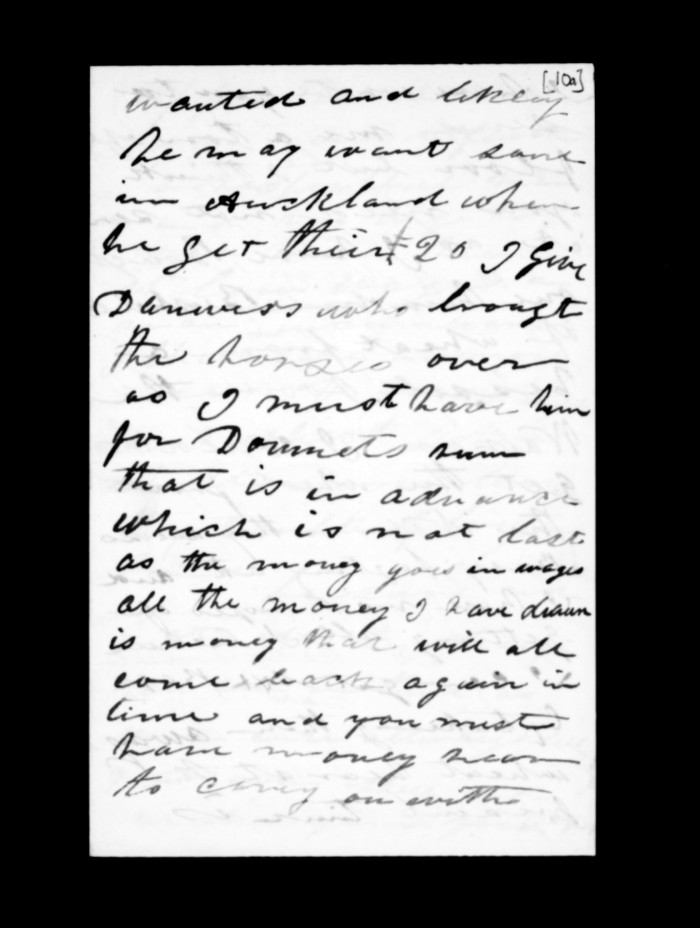 [10a]
wanted and likely
he may want some
in Auckland when
he get their £20 I give
who brought
the horses over
as I must have him
for sum
that is in advance
which is not last
as the money goes in wages
all the money I have drawn
is money that will all
come back again in
time and you must
have money hear
to carey on with